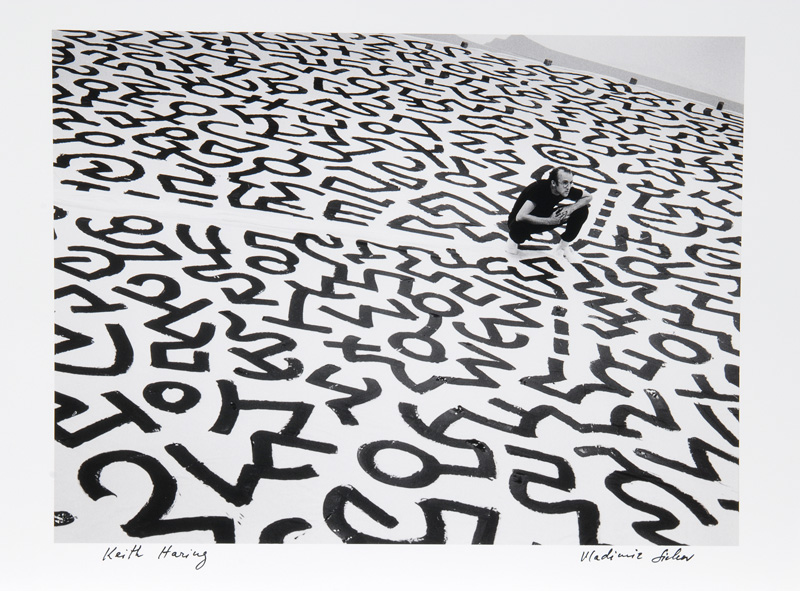 Keith Haring
Vladimir Sichov